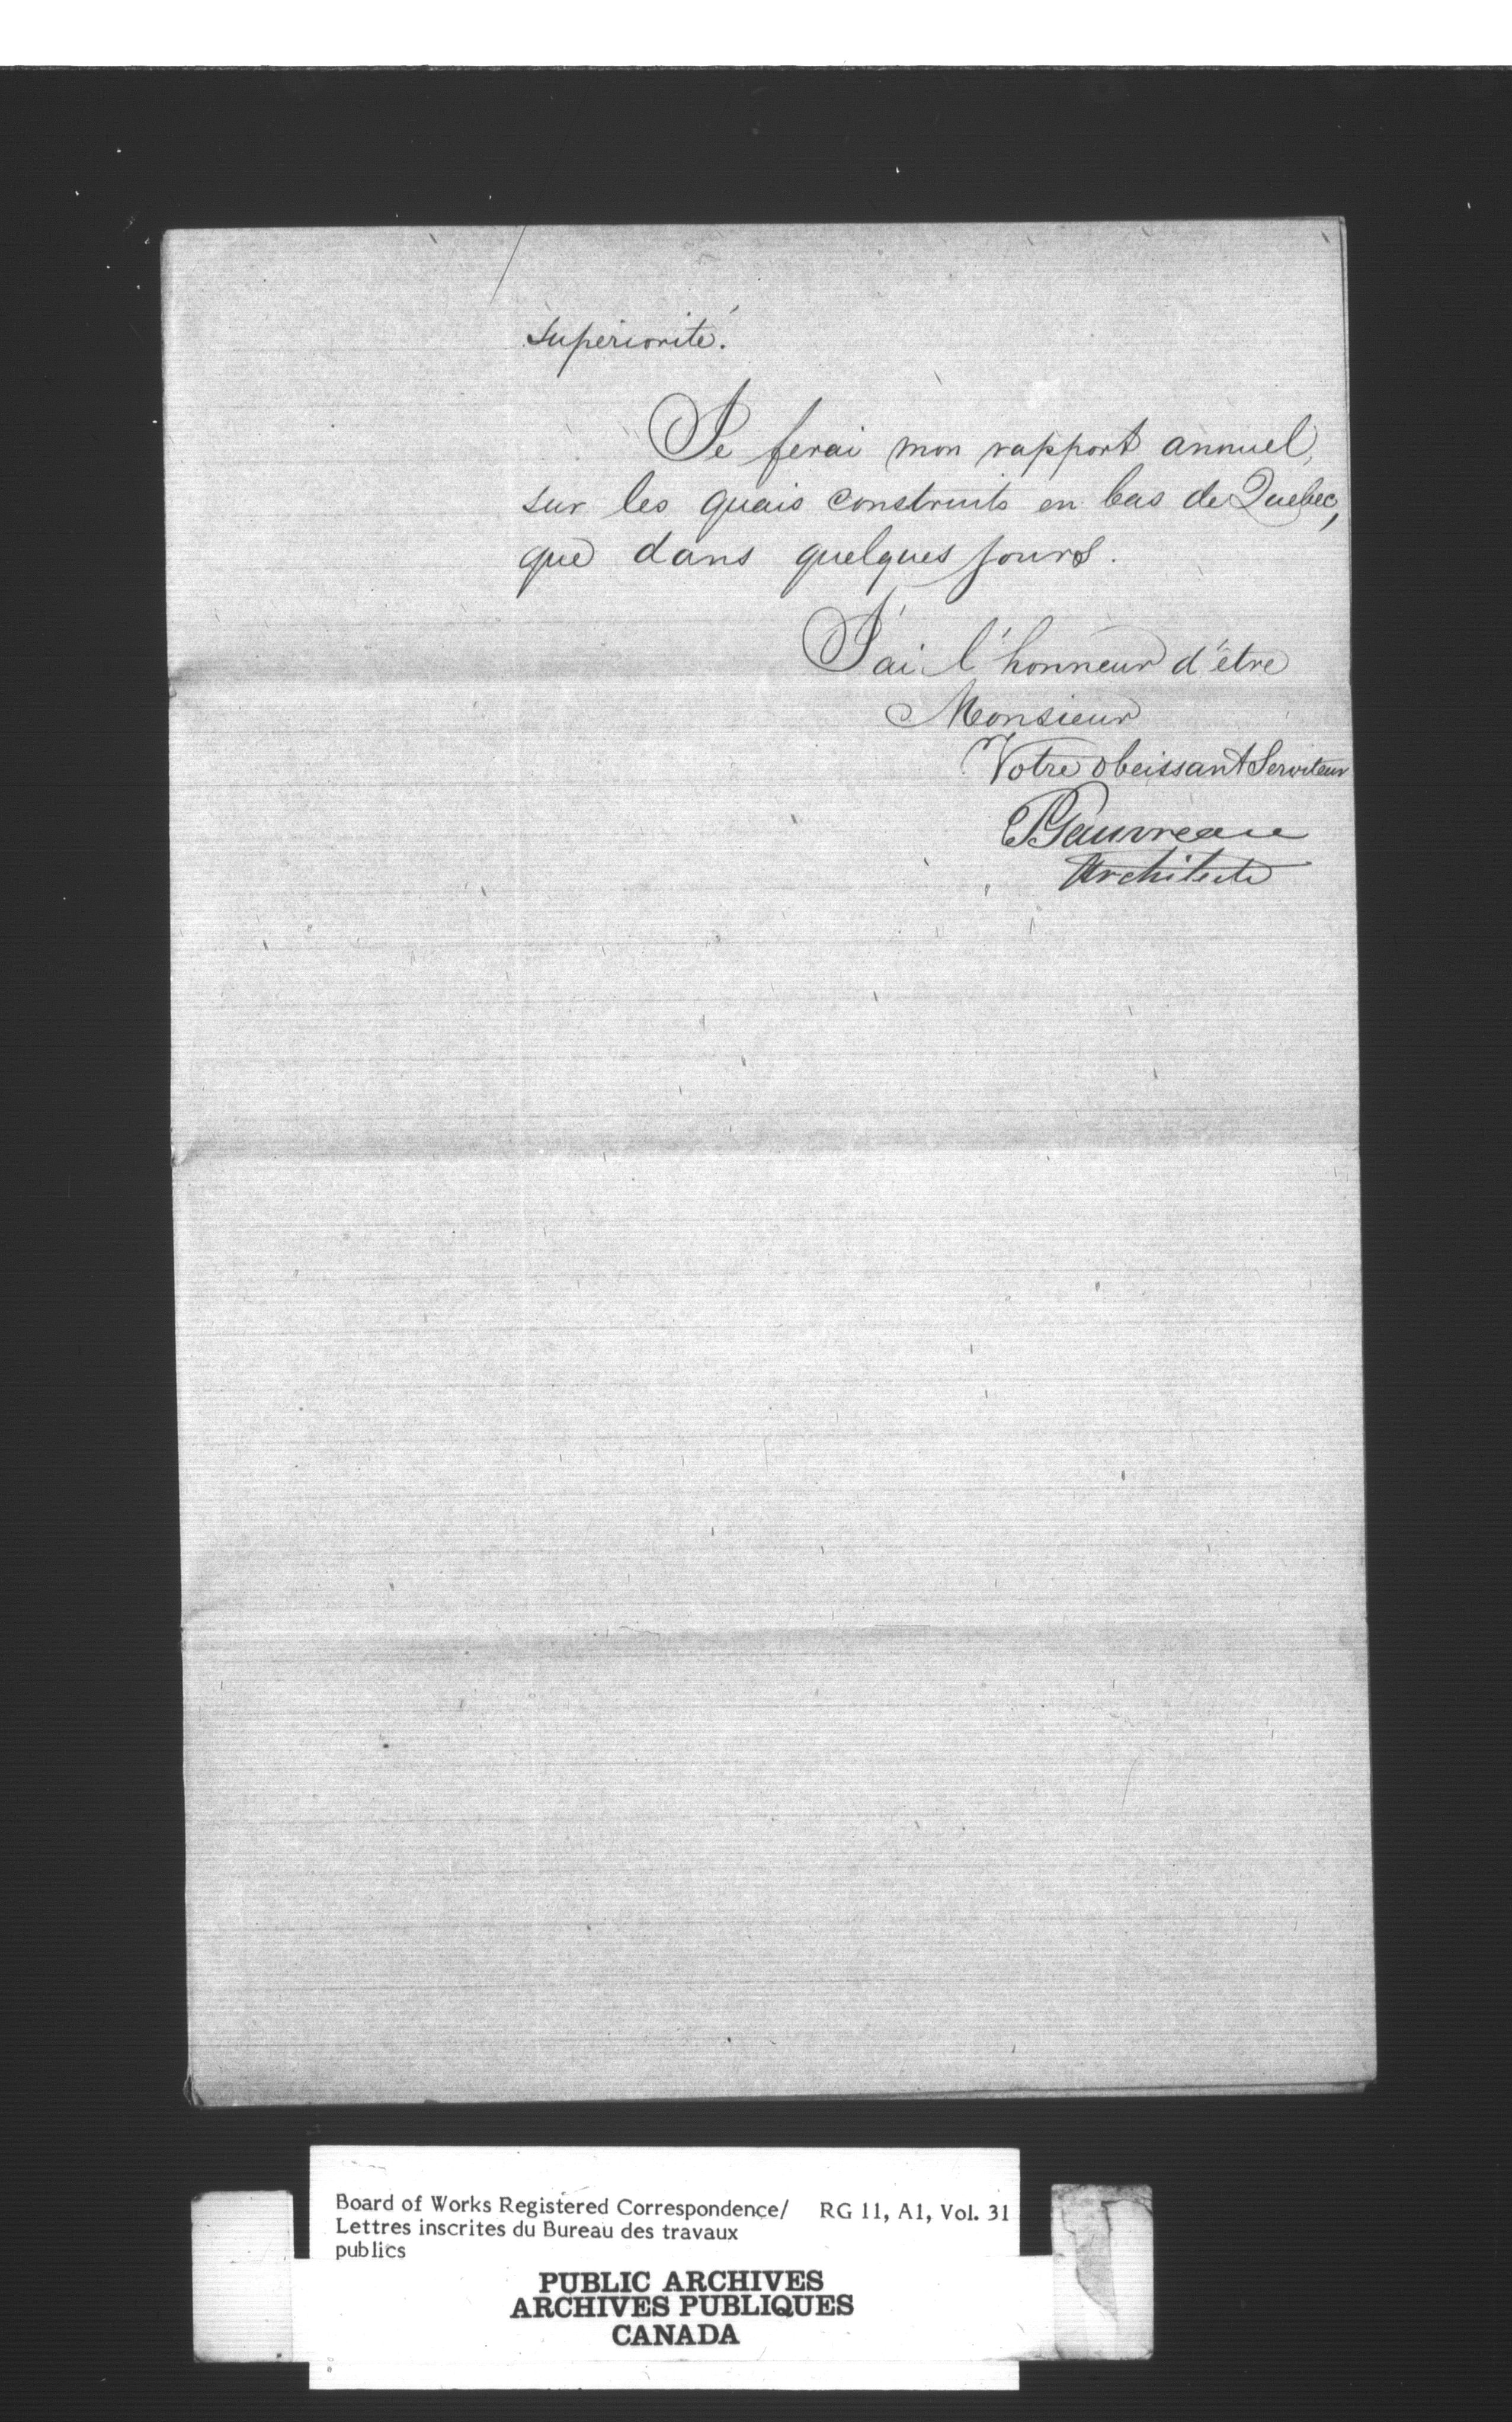 superiorité.
Je ferai mon rapport annuel,
sur les quais construits en bas de Quebec,
que dans quelques jours.
J'ai l'honneur d'être
Monsieur
Votre obeissant Serviteur
PGauvreau
Architecte
Board of Works Registered Correspondence/ RG 11, A1, Vol. 31
Lettres inscrites du Bureau des travaux
publics
PUBLIC ARCHIVES
ARCHIVES PUBLIQUES
CANADA